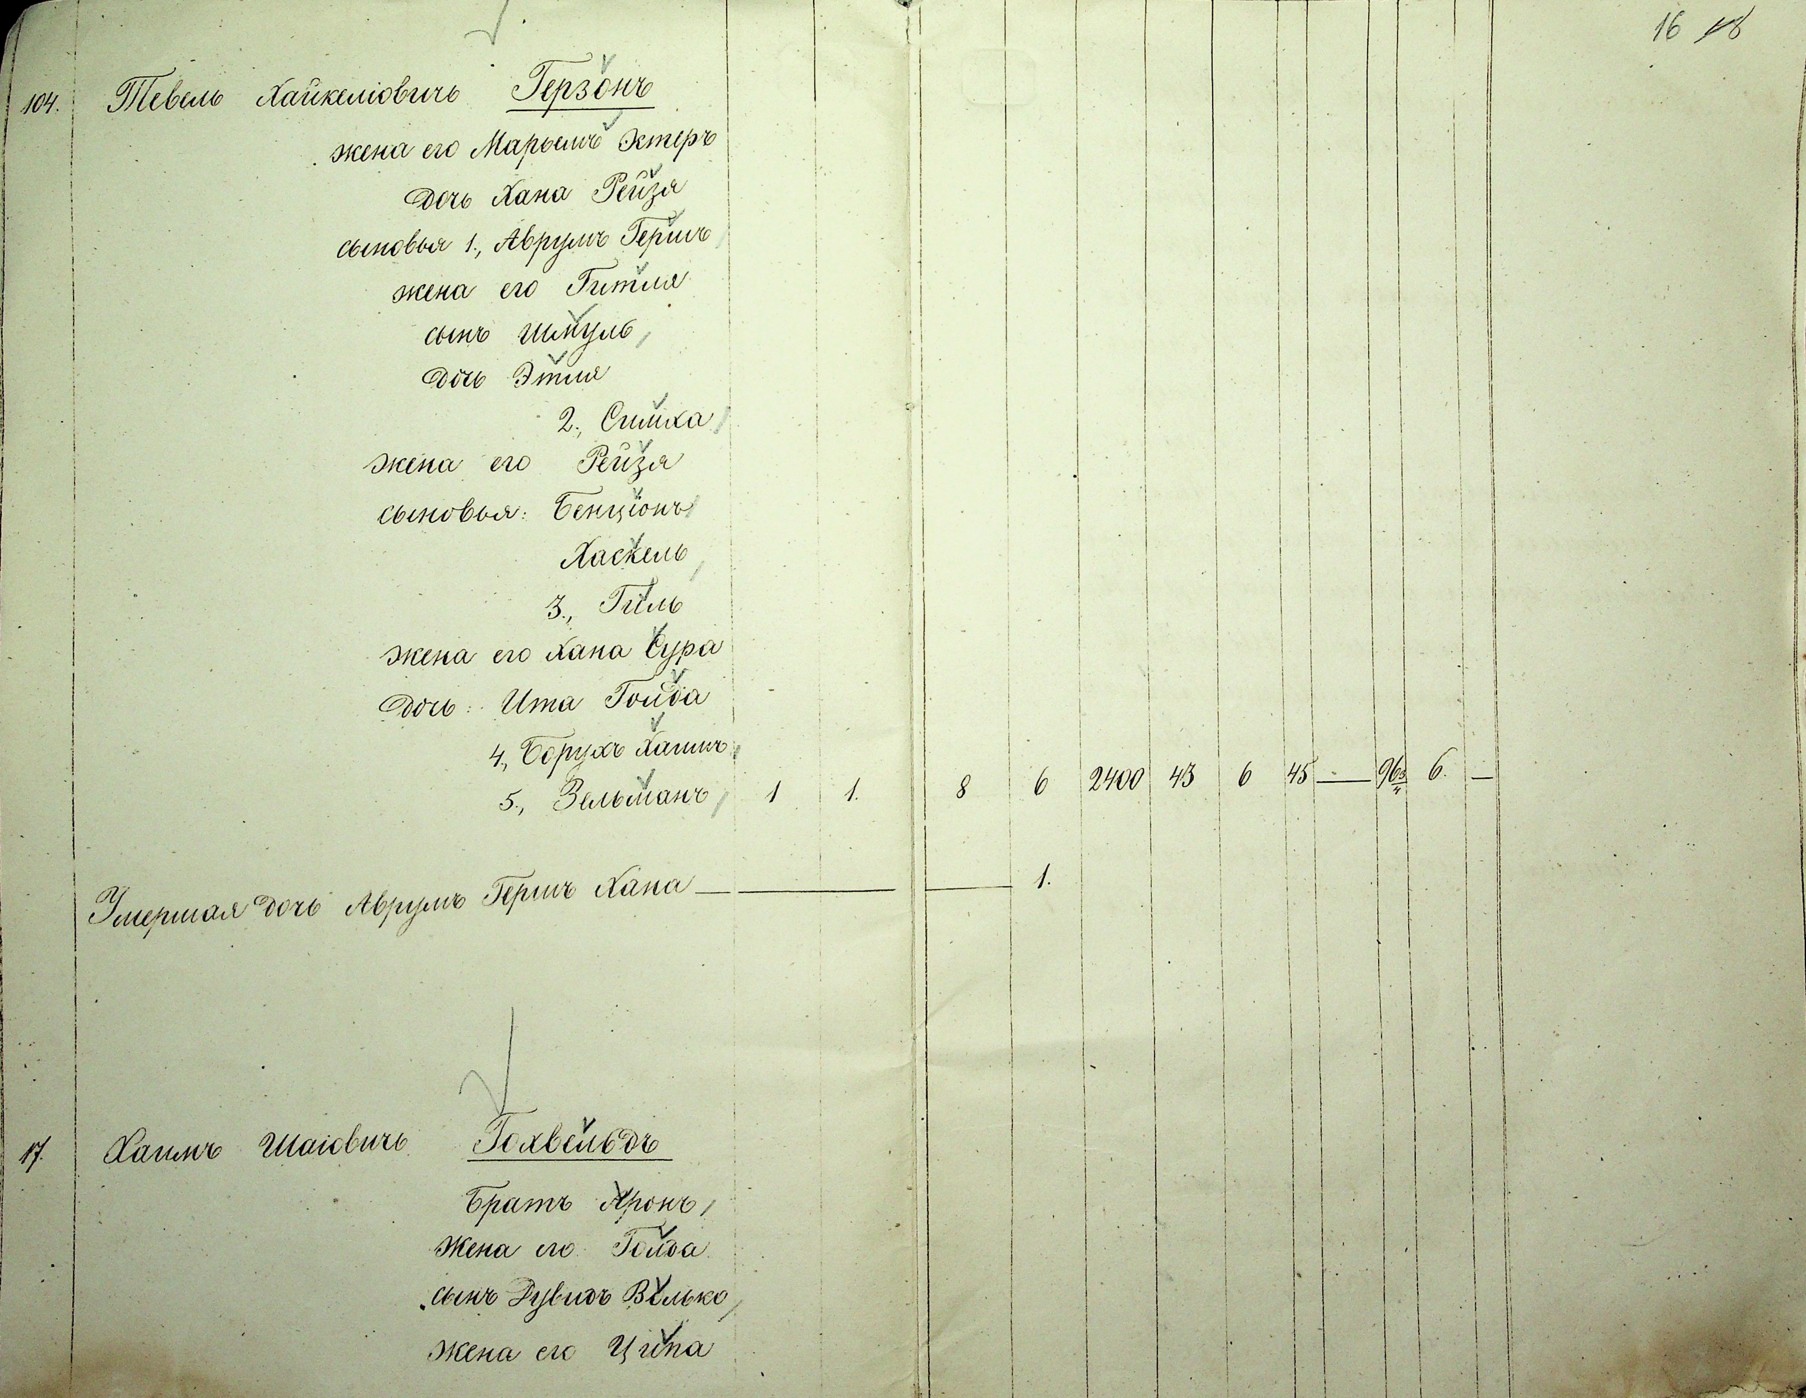 16 18
104. Тевель Хайкеліовичъ Герзонъ
жена его Марьемъ Эстеръ
дочь Хана Рейзя
сыновья 1., Аврумъ Гершъ
жена его Гитля
сынъ Шмуль
дочь Этля
2., Симха
жена его Рейзя
сыновья: Бенціонъ
Хаскель
3., Гиль
жена его Хана Сура
дочь: Ита Голда
4., Борухъ Хаимъ
5., Зельманъ 1 1. 8 6 2400 43 6 45 — 96 3/4 6. —
Умершая дочь Аврумъ Гершъ Хана — 1.
17. Хаимъ Шаіовичъ Гохвельдъ
Братъ Аронъ
Жена его Голда
сынъ Дувидъ Велько
жена его Ципа